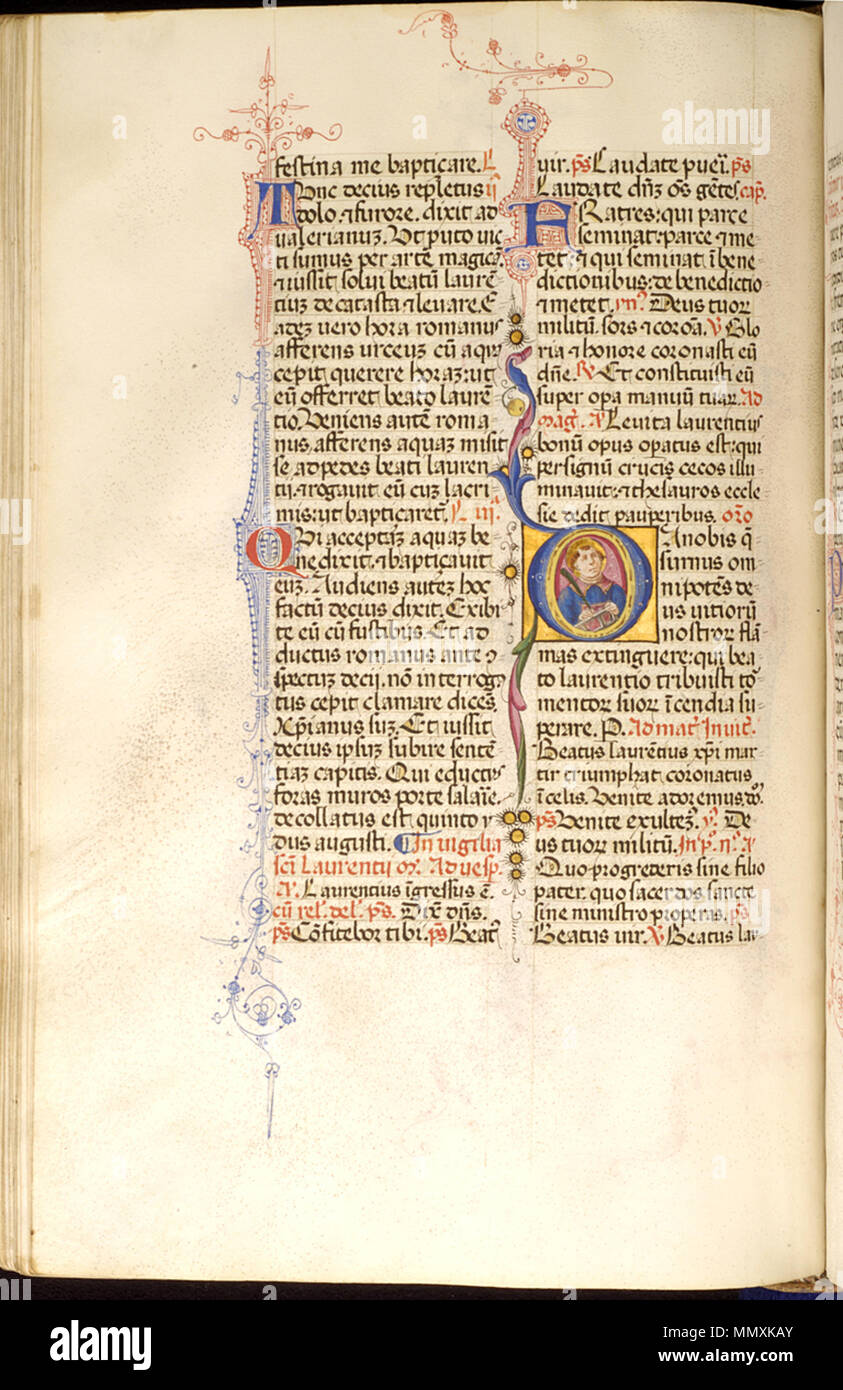 festina me bapticare. L̃
TUnc decius repletus ii
dolo ⁊ furore. dixit ad
ualerianuꝫ. Vt puto uic
ti sumus per artē magicā.
⁊ iussit solui beatū laurē
tiuꝫ de catasta ⁊ leuare. E
adeꝫ uero hora romanus
afferens urceuꝫ cū aqua
cepit querere horaꝫ: ut
eū offerret beato laurē
tio. Veniens autē roma
nus afferens aquaꝫ misit
se ad pedes beati lauren
tii. ⁊ rogauit eū cuꝫ lacri
mis: ut bapticaret. L̃ iii.
QUi accepta aquaꝫ be
nedixit. ⁊ bapticauit
euꝫ. Audiens auteꝫ hoc
factū decius dixit. Exibi
te eū cū fustibus. Et ad
ductus romanus ante ꝯ
spectuꝫ decii. nō interrog
tus cepit clamare dicēs.
Xp̄ianus suꝫ. Et iussit
decius ipsuꝫ subire sentē
tiaꝫ capitis. Qui eductus
foras muros porte salarie.
decollatus est quinto y
dus augusti. In uigilia
sc̄i Laurentii m̄r. Ad uesp̄.
A. Laurentius īgressus ē.
cū rel. de l. ps̄. Dix̄ dn̄s.
ps̄ Cōfitebor tibi. ps̄ Beat
uir. ps̄ Laudate pueri. ps̄
Laudate dn̄ꝫ oēs gētes. cap.
FRatres: qui parce
seminat: parce ⁊ me
tet: ⁊ qui seminat ī bene
dictionibus: de benedictio
⁊ metet. ym̄. Deus tuoꝝ
militū. sors ⁊ corōa. V Glo
ria ⁊ honore coronasti eū
dn̄e. R Et constituisti eū
super opa manuū tuaꝝ. Ad
mag. A Leuita laurentius
bonū opus opatus est: qui
per signū crucis cecos illu
minauit: ⁊ thesauros eccle
sie dedit pauperibus. oro
DA nobis q̄
sumus om
nipotēs de
us uitiorū
nostroꝝ flā
mas extinguere: qui bea
to laurentio tribuisti to
mentoꝝ suoꝝ īcendia su
perare. P. Ad mat. Inuit.
Beatus laurētius xp̄i mar
tir triumphat coronatus
ī celis. Venite adoremus. dō.
ps̄ Venite exulteꝫ. y. De
us tuoꝝ militū. In p. n. A
Quo progrederis sine filio
pater. quo sacerdos sancte
sine ministro properas. ps̄
Beatus uir. V Beatus lau
a
alamy
alamy
Image ID: MMXKAY
www.alamy.com